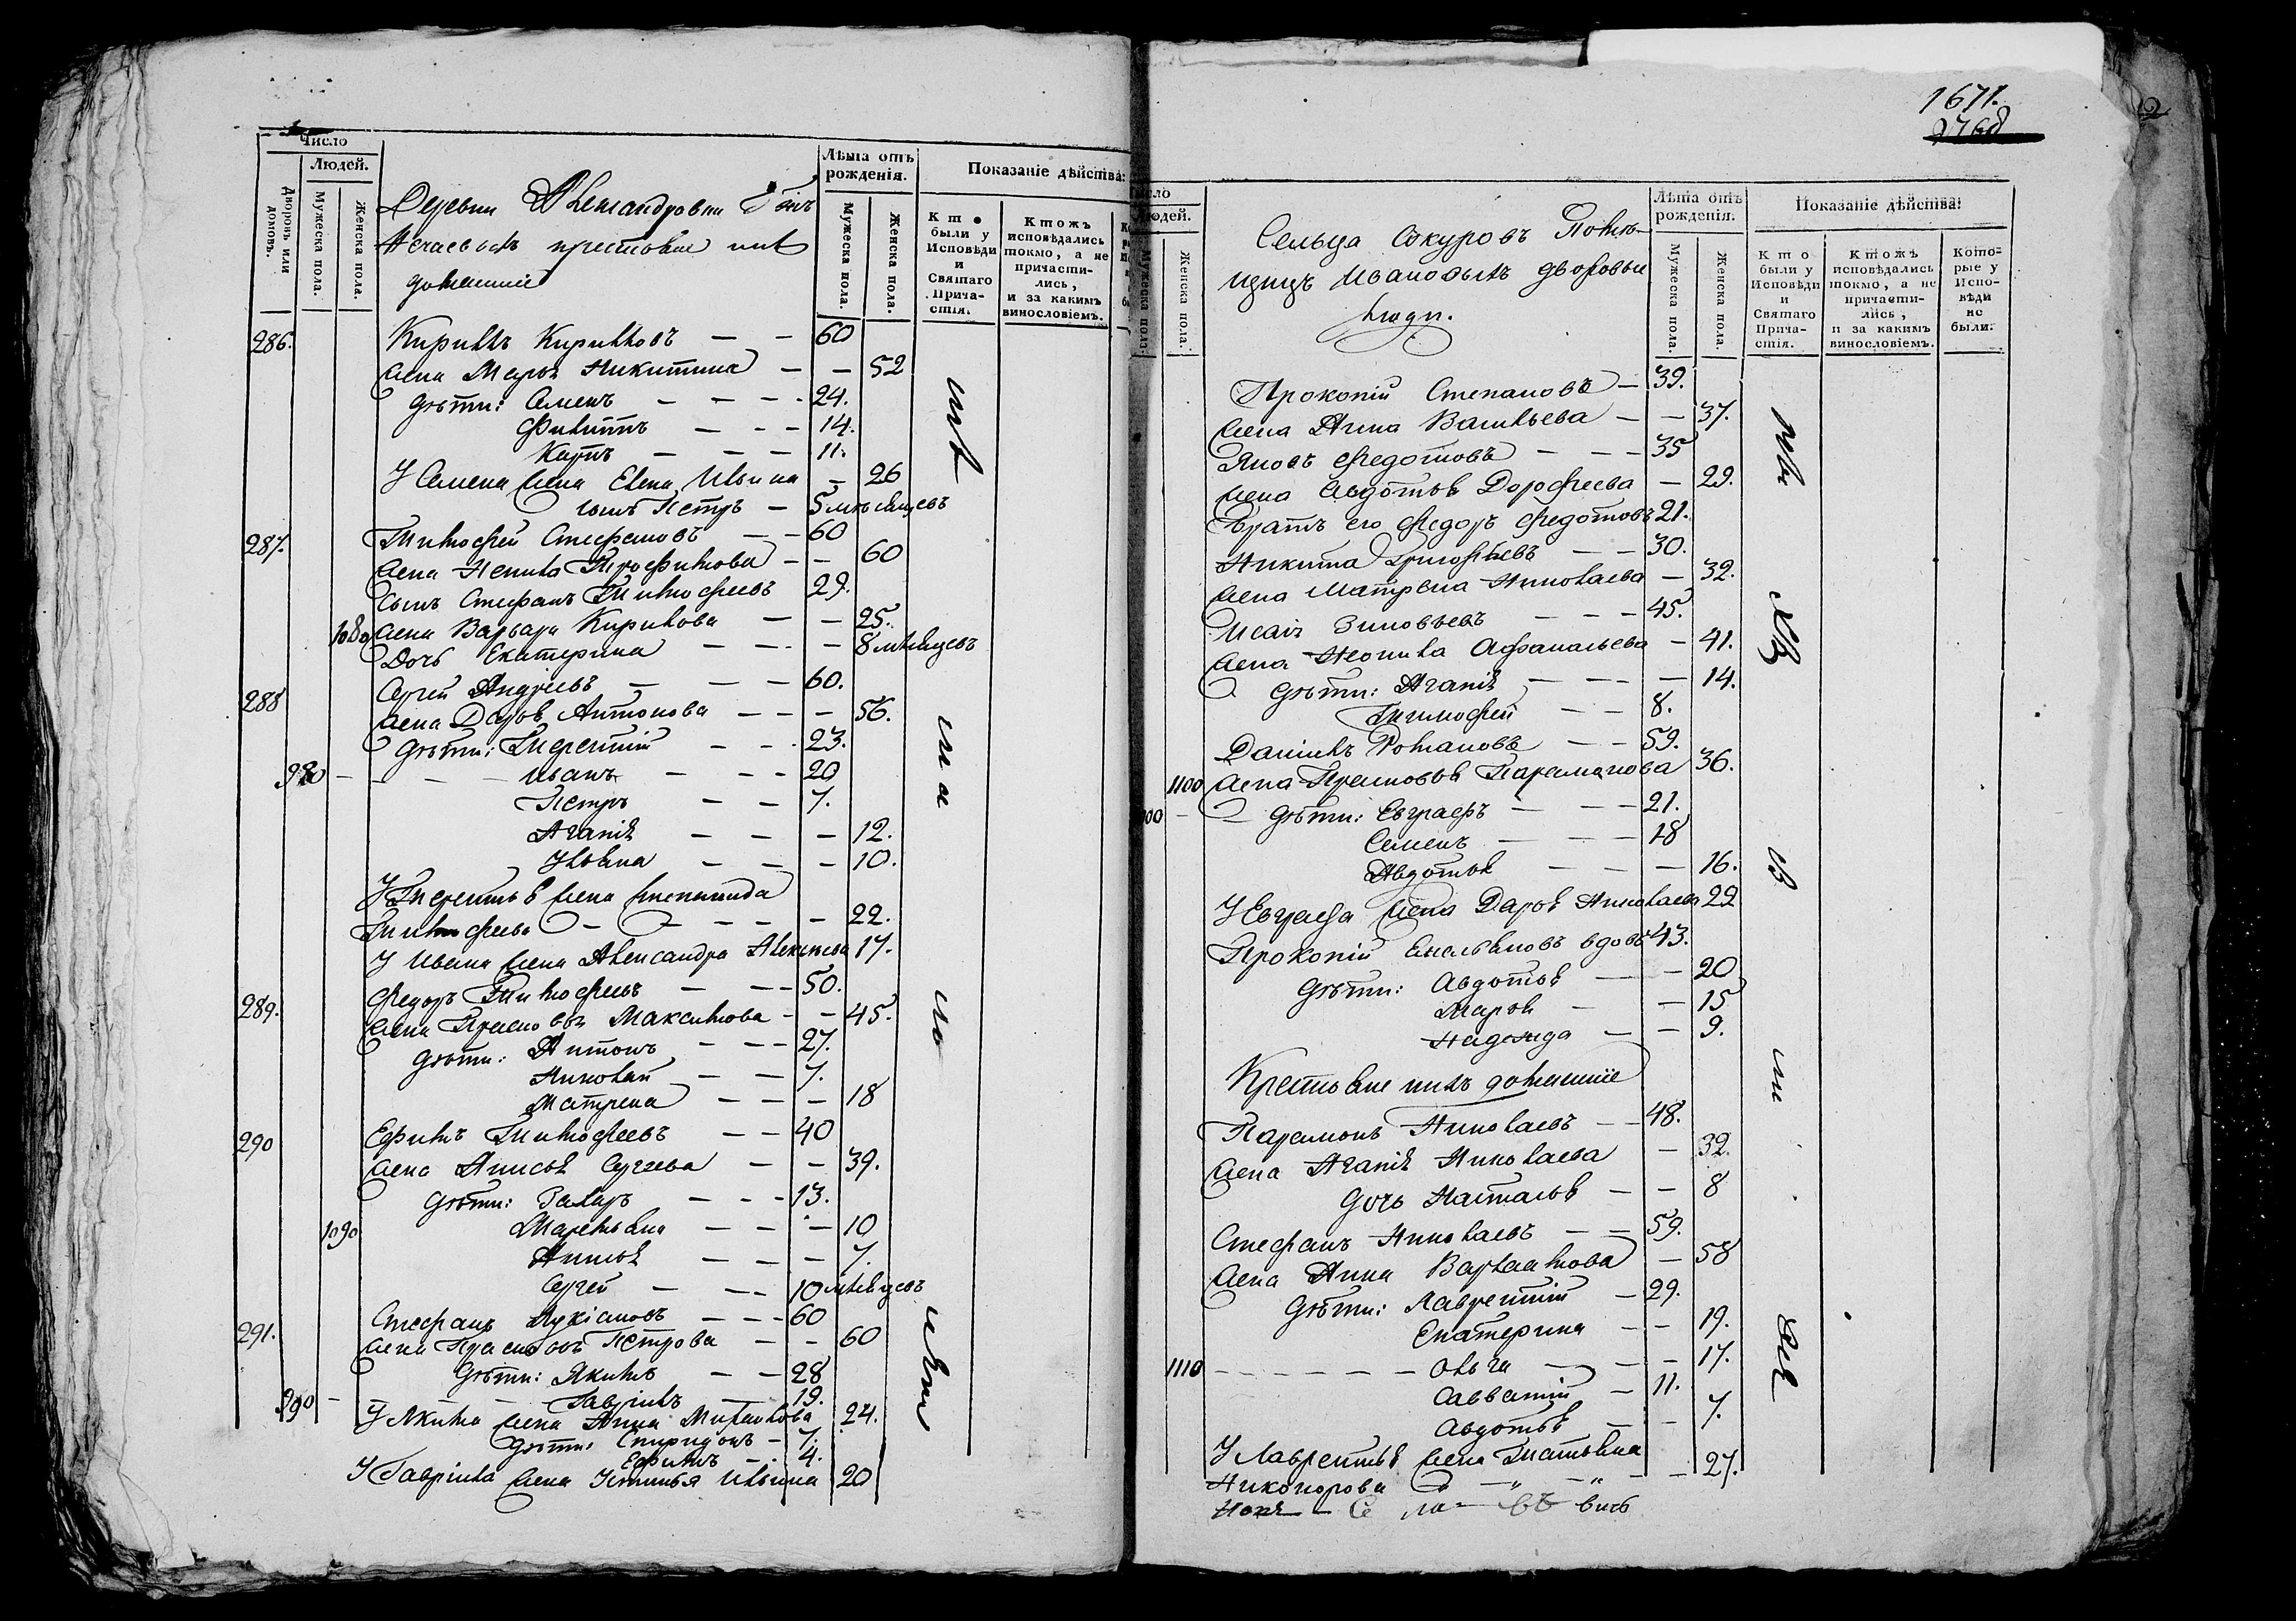 Число
Людей.
Дворовъ или домовъ.
Мужеска пола.
Женска пола.
Деревни Александровки
Нечаевыхъ крестьяне ихъ
домашніе
Лѣта отъ рожденія.
Мужеска пола.
Женска пола.
Показаніе дѣйства:
Кто были у Исповѣди и Святаго Прича-стія.
Ктожъ исповѣдались токмо, а не причасти-лись, и за какимъ винословіемъ.
286. Кириллъ Кирилловъ — — 60
жена Марья Никитина — — 52
дѣти: Семенъ — — — 24.
Филиппъ — — — 14.
Карпъ — — — 11.
У Семена жена Елена Ильина — 26
сынъ Петръ — 5 мѣсяцевъ
287. Тимофей Стефановъ — — 60
жена Ненила Трофимова — — 60
сынъ Стефанъ Тимофеевъ 29.
1080 жена Варвара Кирилова — — 25.
Дочь Екатерина — — — 8 мѣсяцевъ
288 Сергей Андреевъ — — — 60.
жена Дарья Антонова — — — 56.
дѣти: Терентій — — 23.
980 — — — Иванъ — — — 20
Петръ — — 7.
Агапія — — — 12.
Ульяна — — — 10.
У Терентья жена Степанида
Тимофеева — — — — 22.
У Ивана жена Александра Алексеева 17.
289. Федоръ Тимофеевъ — — — 50.
жена Прасковья Максимова — — 45.
дѣти: Антонъ — — — 27.
Николай — — 7.
Матрена — — — 18
290 Ефимъ Тимофеевъ — — 40
жена Анисья Сергеева — — 39.
дѣти: Захаръ — — — 13.
1090 Маремьяна — — — 10
Анисья — — — 7.
Сергей — — — 10 мѣсяцевъ
291. Стефанъ Лукіановъ — — — 60
жена Прасковья Петрова — — 60
дѣти: Якимъ — — 28
990 — — — Гавріилъ — — 19.
У Якима жена Анна Михайлова 24.
дѣти: Спиридонъ — 7.
Ефимъ — 4.
У Гавріила жена Устинья Ильина 20
1671.
2
Людей.
Мужеска пола.
Женска пола.
Сельца Сокуровъ Помѣ-
щицъ Ивановыхъ дворовые
люди.
Лѣта отъ рожденія.
Мужеска пола.
Женска пола.
Показаніе дѣйства:
Кто были у Исповѣди и Святаго Прича-стія.
Ктожъ исповѣдались токмо, а не причасти-лись, и за какимъ винословіемъ.
Кото-рые у Испо-вѣди не были.
Прокопій Степановъ — 39.
жена Анна Васильева — — 37.
Яковъ Федотовъ — — — 35
жена Авдотья Дорофеева — 29.
братъ его Федоръ Федотовъ 21.
Никита Григорьевъ — — 30.
жена Матрена Николаева — 32.
Исаія Зиновьевъ — — — 45.
жена Неонила Афанасьева — 41.
дѣти: Агапія — — — 14.
Тимофей — — 8.
Даніилъ Романовъ — — 59.
1100 жена Прасковья Парамонова 36.
дѣти: Евграфъ — — — 21.
Семенъ — — — 18
Авдотья — — — 16.
У Евграфа жена Дарья Николаева 22
Прокопій Емельяновъ вдовъ 43.
дѣти: Авдотья — — 20
Марья — — 15
Надежда — — 9.
Крестьяне ихъ домашніе
Парамонъ Николаевъ — — 48.
жена Агапія Николаева — 32.
дочь Наталья — — 8
Стефанъ Николаевъ — — 59.
жена Анна Варлаамова — 58
дѣти: Лаврентій — 29.
Екатерина — — 19.
1110 — — — — — Ольга — — — 17.
Савватій — 11.
Авдотья — — 7.
У Лаврентья жена Татьяна
Никонорова — „ — „ — — 27.